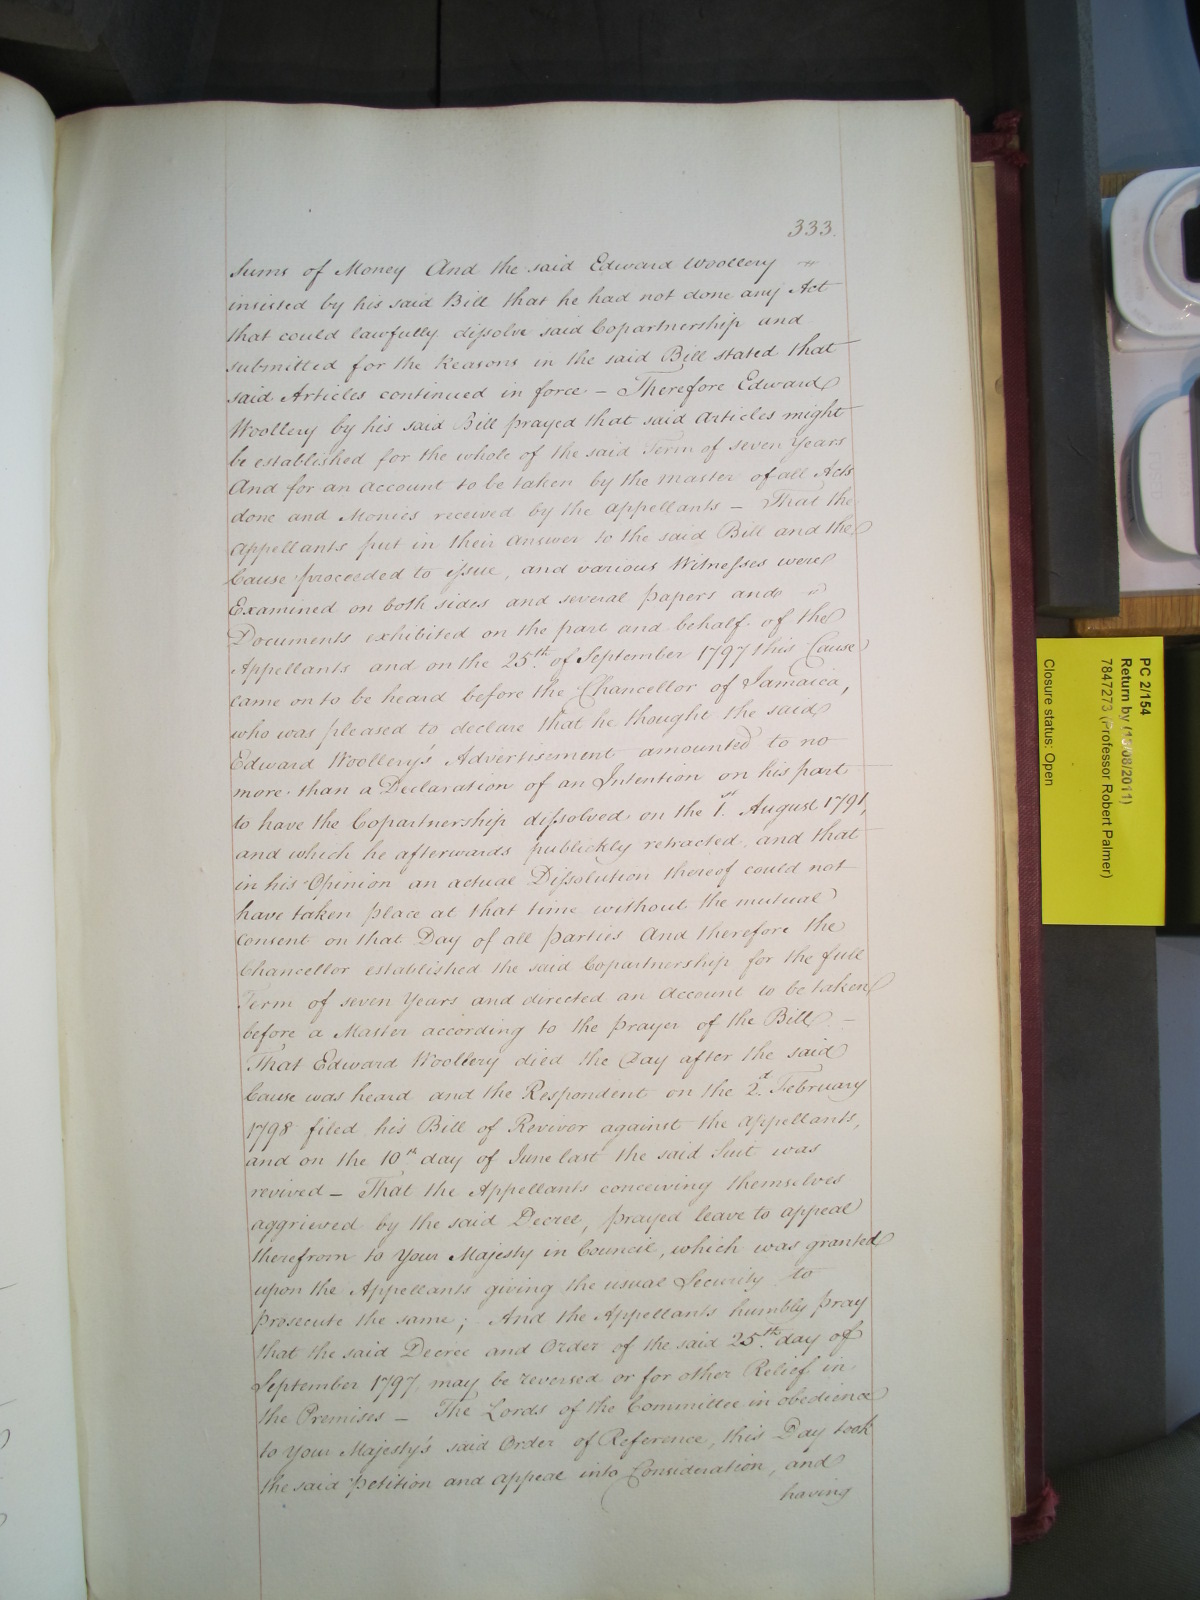 333.
Sums of Money And the said Edward Woollery
insisted by his said Bill that he had not done any Act
that could lawfully dissolve said Copartnership and
submitted for the Reasons in the said Bill stated that
said Articles continued in force – Therefore Edward
Woollery by his said Bill prayed that said Articles might
be established for the whole of the said Term of seven Years
And for an Account to be taken by the Master of all Acts
done and Monies received by the Appellants – That the
Appellants put in their Answer to the said Bill and the
Cause proceeded to issue, and various Witnesses were
Examined on both sides and several papers and
Documents exhibited on the part and behalf of the
Appellants and on the 25th of September 1797 this Cause
came on to be heard before the Chancellor of Jamaica,
who was pleased to declare that he thought the said
Edward Woollery's Advertisement amounted to no
more than a Declaration of an Intention on his part
to have the Copartnership dissolved on the 1st August 1791,
and which he afterwards publickly retracted, and that
in his Opinion an actual Dissolution thereof could not
have taken place at that time without the mutual
Consent on that Day of all parties And therefore the
Chancellor established the said Copartnership for the full
Term of seven Years and directed an Account to be taken
before a Master according to the prayer of the Bill –
That Edward Woollery died the Day after the said
Cause was heard and the Respondent on the 2d February
1798 filed his Bill of Revivor against the Appellants,
and on the 10th day of June last the said Suit was
revived – That the Appellants conceiving themselves
aggrieved by the said Decree, prayed leave to appeal
therefrom to Your Majesty in Council, which was granted
upon the Appellants giving the usual Security to
prosecute the same; And the Appellants humbly pray
that the said Decree and Order of the said 25th day of
September 1797 may be reversed or for other Relief in
the Premises – The Lords of the Committee in obedience
to Your Majesty's said Order of Reference, this Day took
the said Petition and Appeal into Consideration, and
having
PC 2/154
Return by (18/08/2011)
7847273 (Professor Robert Palmer)
Closure status: Open